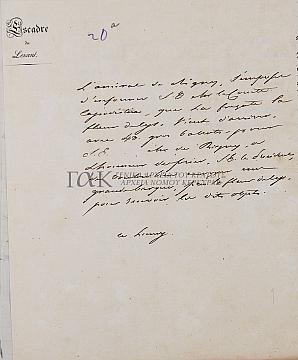 Escadre
du
Levant.
20 a
L'amiral de Rigny, s'empresse
d'informer S. E. Mr le Comte
Capodistrias, que la frégate la
fleur de lys, vient d'arriver,
avec 40 gros ballots pour
S. E. Mr de Rigny, a
l'honneur de prier S. E. de
ΓΑΚ ΓΕΝΙΚΑ ΑΡΧΕΙΑ ΤΟΥ ΚΡΑΤΟΥΣ
ΑΡΧΕΙΑ ΝΟΜΟΥ ΚΕΡΚΥΡΑΣ
grande barque, fleur de lys,
pour recevoir les dits objets.
ce